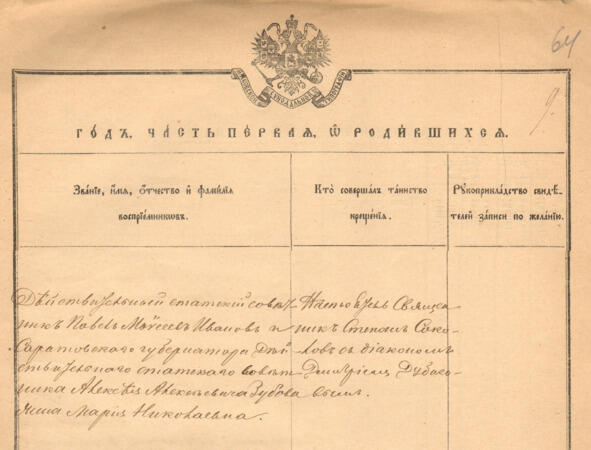 64
9.
МОСКОВСКОЙ СѴНОДАЛЬНОЙ ТИПОГРАФІИ
ГОДЪ, ЧАСТЬ ПЕРВАЯ, Ѿ РОДИ́ВШИХСЯ.
Зва́нїе, и҆́мя, ѻ҆́тчество и҆ фами́лїя воспрїе́мниковъ.
Кто̀ соверша́лъ та́инство креще́нїя.
Рꙋкоприкла́дство свидѣ́телей за́писи по жела́нїю.
Дѣйствительный статскій совѣт
никъ Павелъ Моѵсеевъ Ивановъ и
Саратовскаго губернатора Дѣй
ствительнаго статскаго совѣт
ника Алексѣя Алексѣевича Зубова
жена Марія Николаевна.
Настоятель Священ
никъ Стефанъ Соко
ловъ съ діакономъ
Дмитріемъ Дубасо
вымъ.